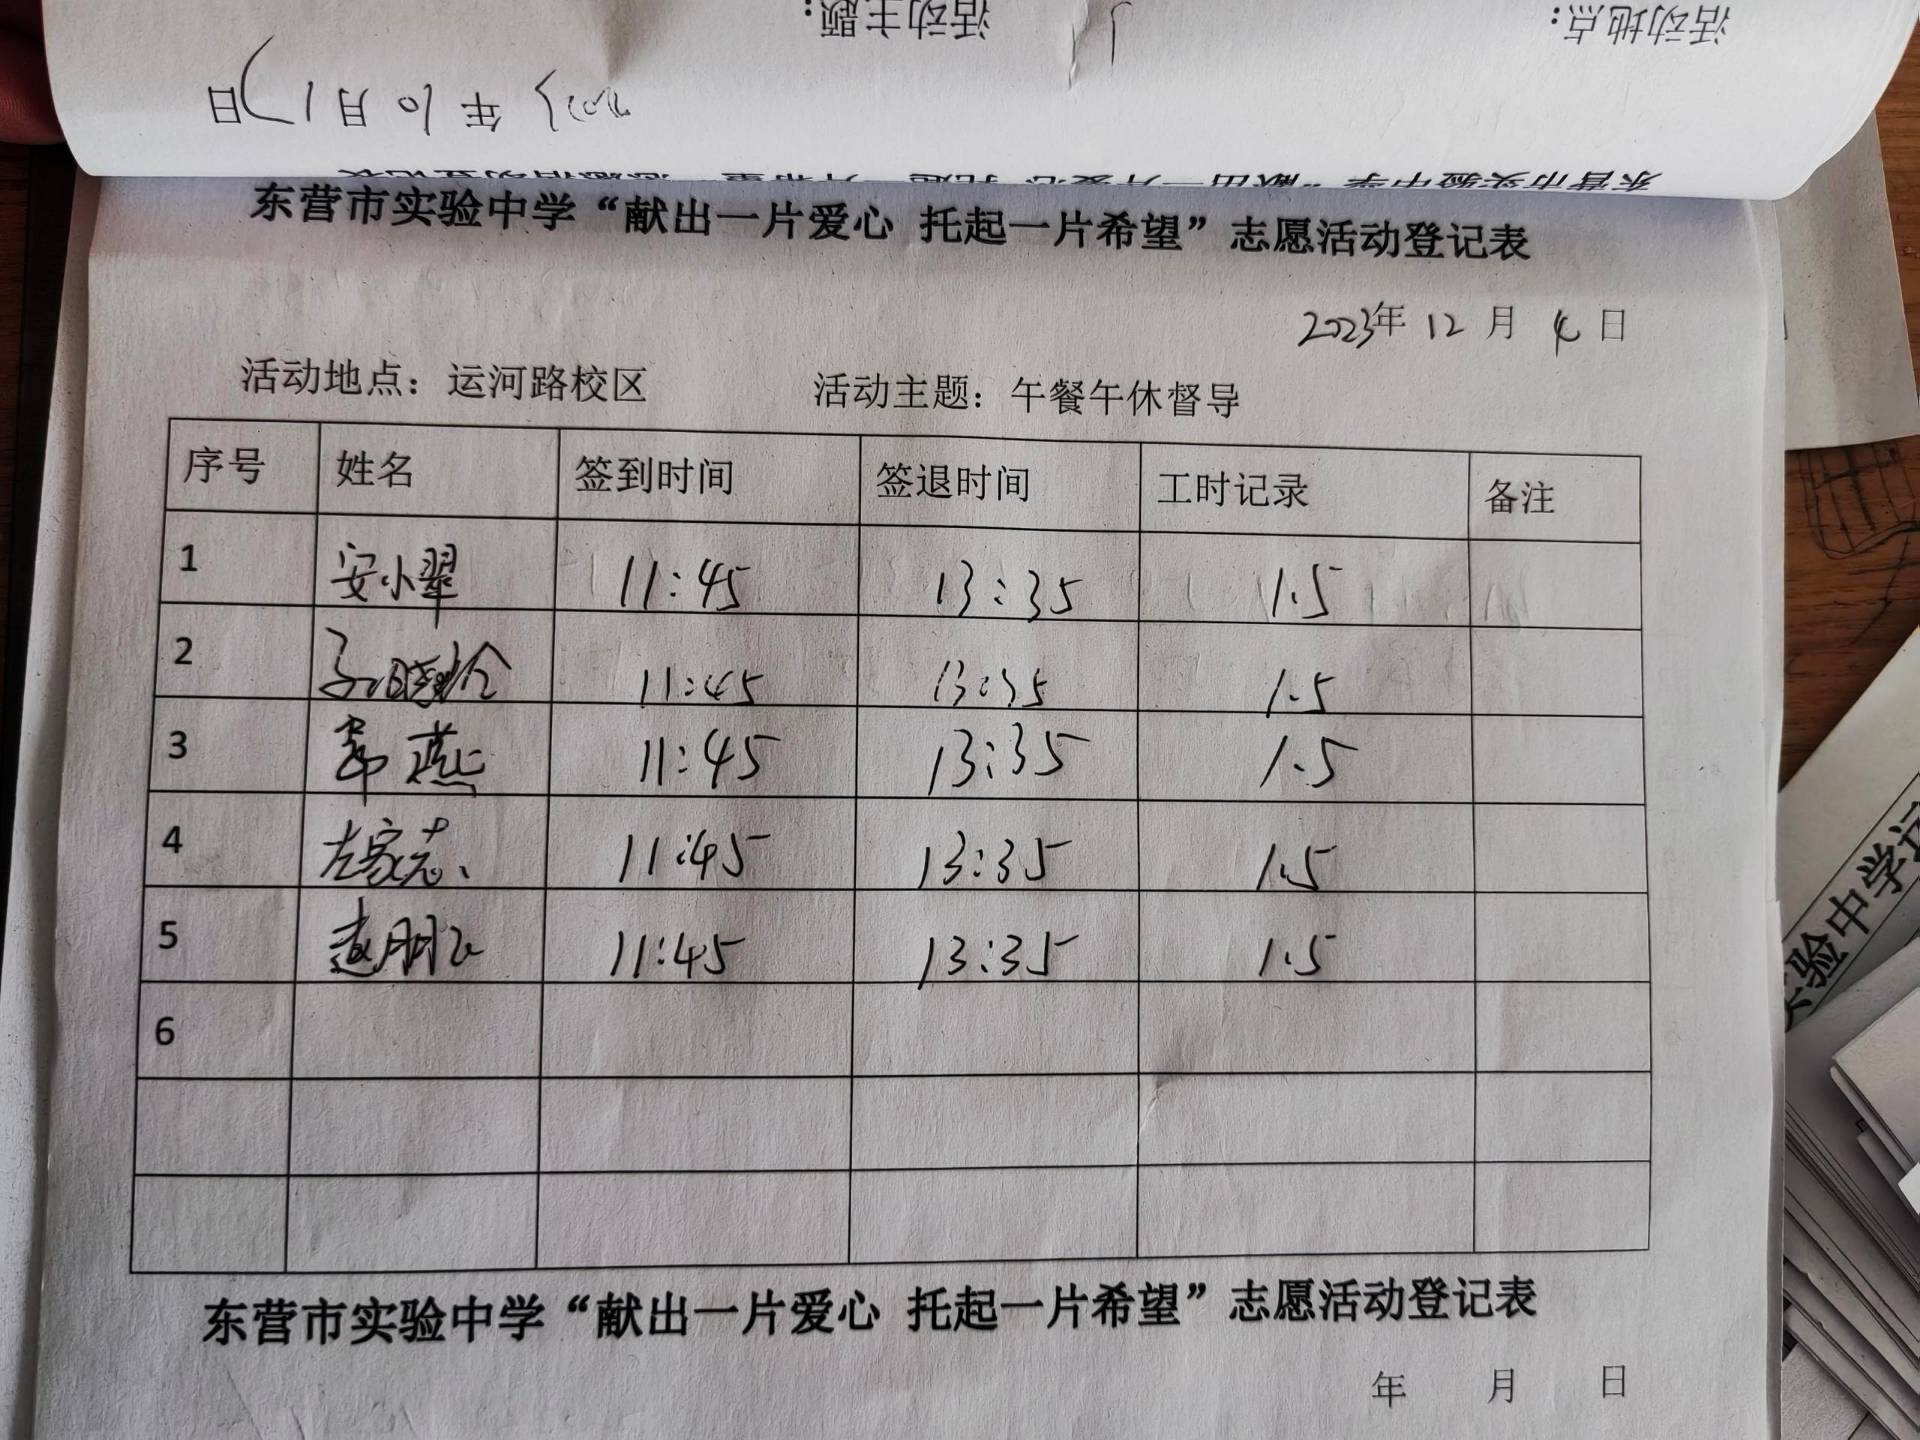 活动主题：
活动地点：
2023年10月17日
东营市实验中学“献出一片爱心 托起一片希望”志愿活动登记表
东营市实验中学“献出一片爱心 托起一片希望”志愿活动登记表
2023年 12 月 4 日
活动地点：运河路校区 活动主题：午餐午休督导
序号 姓名 签到时间 签退时间 工时记录 备注
1 安小翠 11:45 13:35 1.5
2 11:45 13:35 1.5
3 燕 11:45 13:35 1.5
4 左家志 11:45 13:35 1.5
5 赵朋 11:45 13:35 1.5
6
东营市实验中学“献出一片爱心 托起一片希望”志愿活动登记表
年 月 日
实验中学运